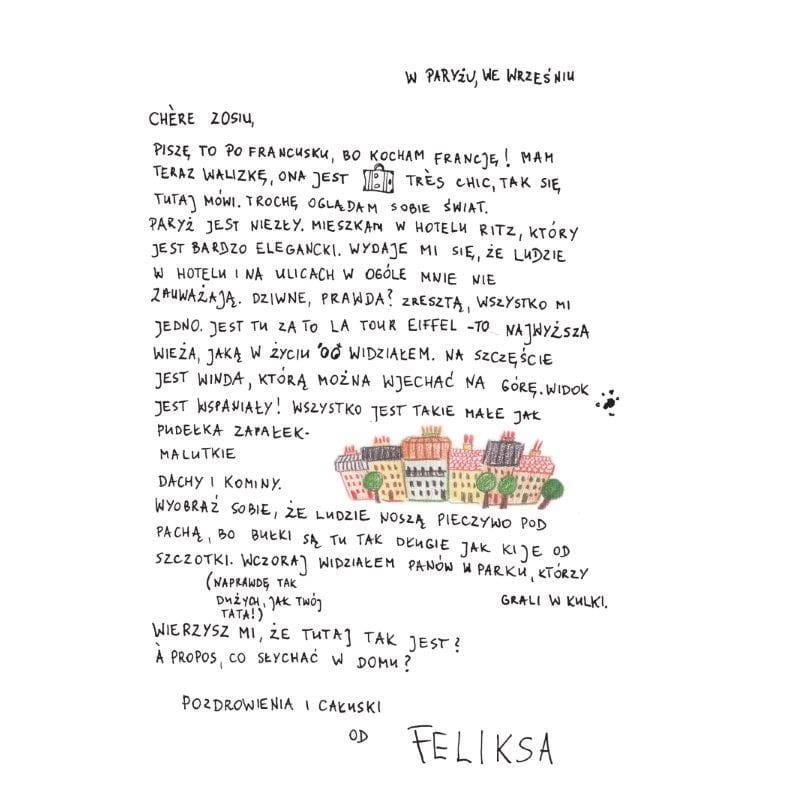 W PARYŻU, WE WRZEŚNIU
CHÈRE ZOSIU,
PISZĘ TO PO FRANCUSKU, BO KOCHAM FRANCJĘ! MAM
TERAZ WALIZKĘ, ONA JEST TRÈS CHIC, TAK SIĘ
TUTAJ MÓWI. TROCHĘ OGLĄDAM SOBIE ŚWIAT.
PARYŻ JEST NIEZŁY. MIESZKAM W HOTELU RITZ, KTÓRY
JEST BARDZO ELEGANCKI. WYDAJE MI SIĘ, ŻE LUDZIE
W HOTELU I NA ULICACH W OGÓLE MNIE NIE
ZAUWAŻAJĄ. DZIWNE, PRAWDA? ZRESZTĄ, WSZYSTKO MI
JEDNO. JEST TU ZA TO LA TOUR EIFFEL - TO NAJWYŻSZA
WIEŻA, JAKĄ W ŻYCIU WIDZIAŁEM. NA SZCZĘŚCIE
JEST WINDA, KTÓRĄ MOŻNA WJECHAĆ NA GÓRĘ. WIDOK
JEST WSPANIAŁY! WSZYSTKO JEST TAKIE MAŁE JAK
PUDEŁKA ZAPAŁEK-
MALUTKIE
DACHY I KOMINY.
WYOBRAŹ SOBIE, ŻE LUDZIE NOSZĄ PIECZYWO POD
PACHĄ, BO BUŁKI SĄ TU TAK DŁUGIE JAK KIJE OD
SZCZOTKI. WCZORAJ WIDZIAŁEM PANÓW W PARKU, KTÓRZY
(NAPRAWDĘ TAK
DUŻYCH, JAK TWÓJ
TATA!)
GRALI W KULKI.
WIERZYSZ MI, ŻE TUTAJ TAK JEST?
À PROPOS, CO SŁYCHAĆ W DOMU?
POZDROWIENIA I CAŁUSKI
OD FELIKSA